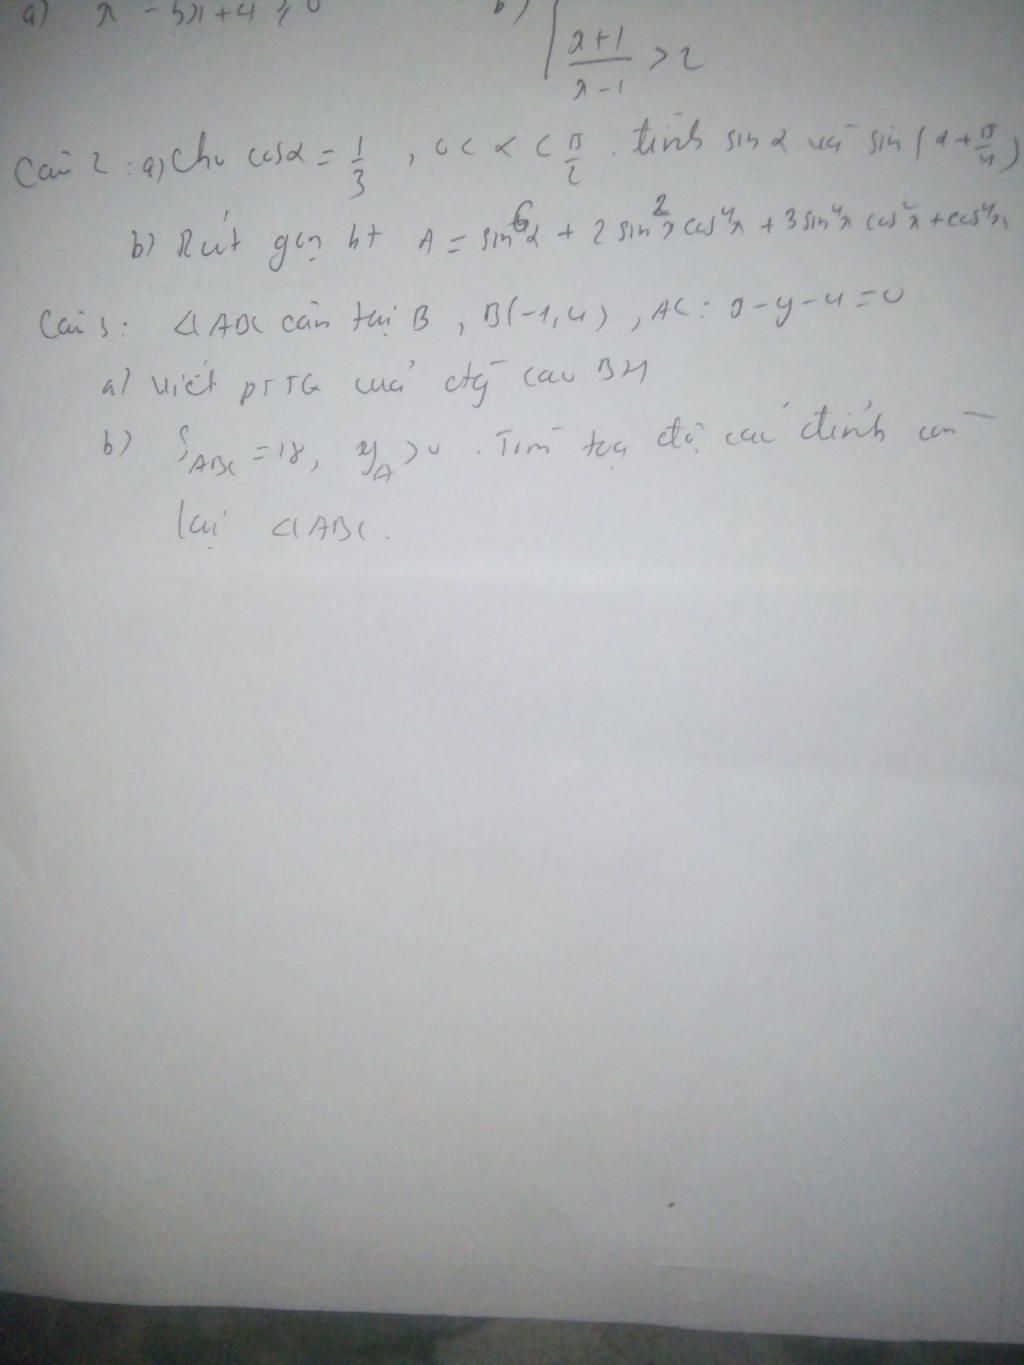 a) x² - 5x + 4 ≥ 0 b) { (x+1)/(x-1) > 2
Câu 2: a) Cho cosα = 1/3, 0 < α < π/2. tính sin α và sin(α + π/4)
b) Rút gọn bt A = sin⁶α + 2 sin²x cos⁴x + 3 sin⁴x cos²x + cos⁴x
Câu 3: ΔABC cân tại B, B(-1,4), AC: x-y-4=0
a) Viết ptTQ của đg cao BH
b) S_ABC = 18, y_A > 0. Tìm toạ độ các đỉnh còn
lại ΔABC.